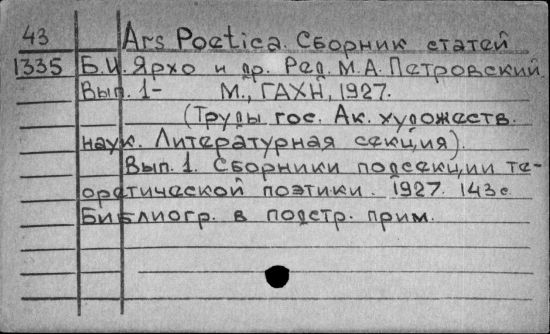 43 Ars Poetica. Сборник статей
1335 Б.И. Ярхо и др. Ред. М.А. Петровский.
Вып. 1- М., ГАХН, 1927.
(Труды гос. Ак. художеств.
наук. Литературная секция).
Вып. 1. Сборники подсекции те-
оретической поэтики. 1927. 143 с.
Библиогр. в подстр. прим.